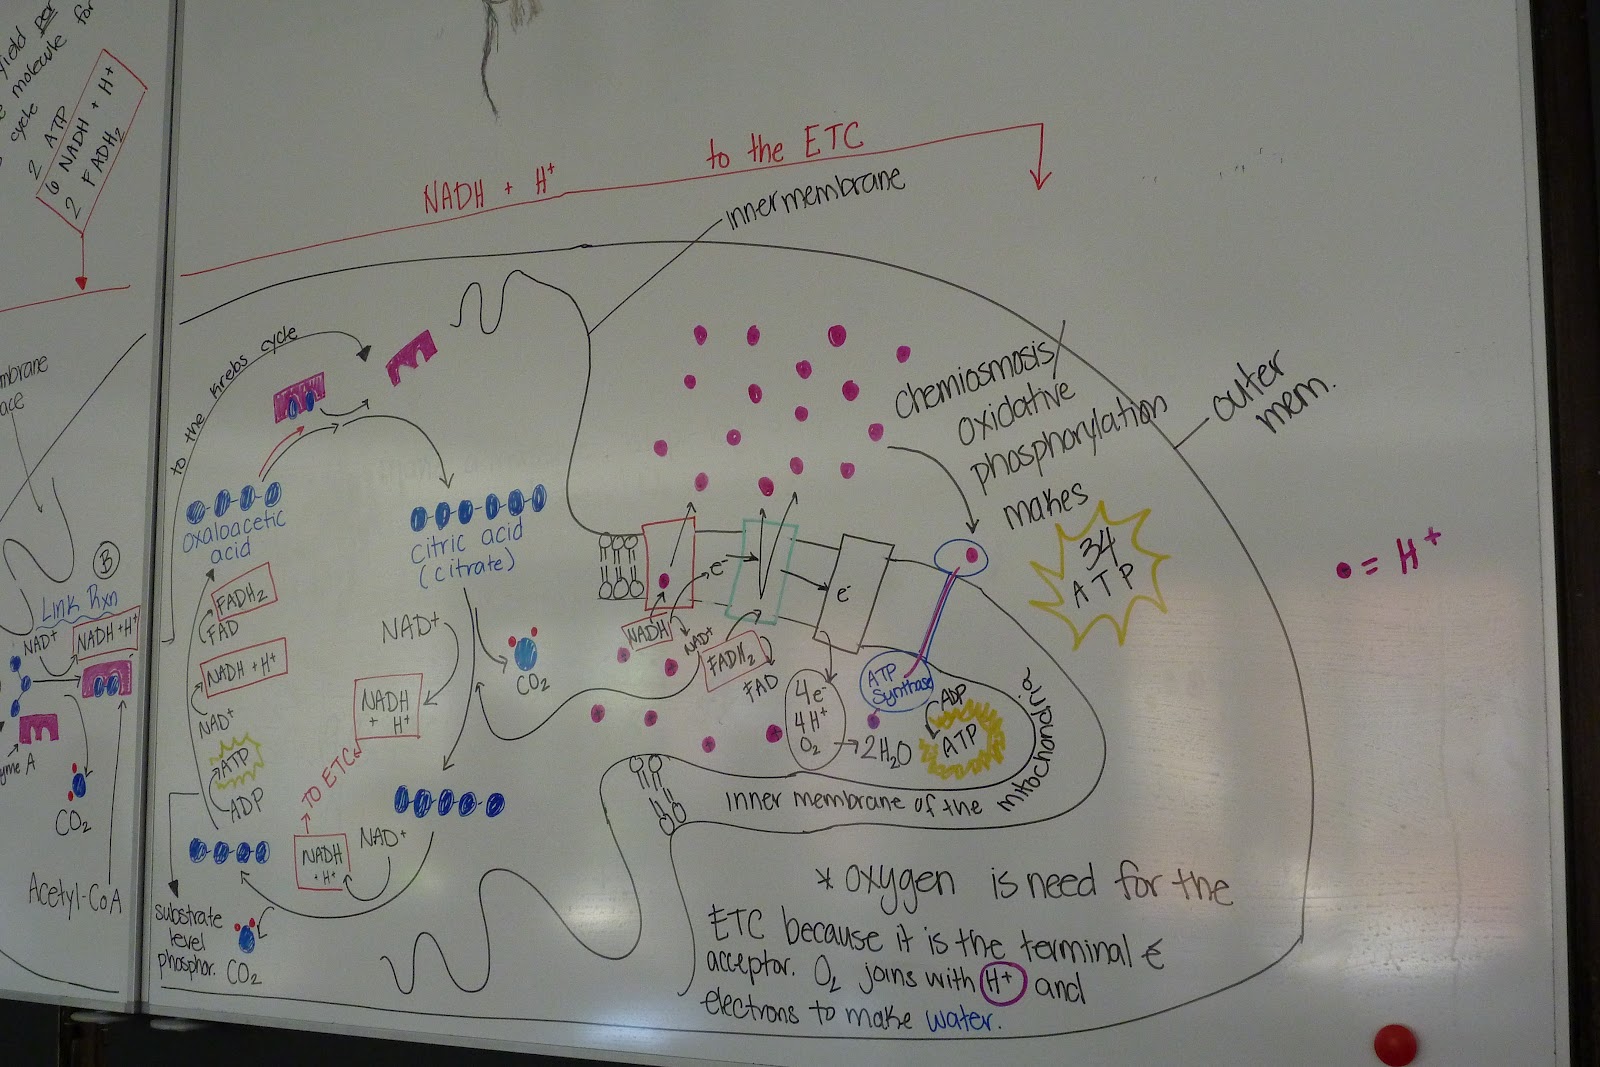 yield per
molecule for
cycle
2 ATP
6 NADH + H+
2 FADH2
NADH + H+ to the ETC
inner membrane
to the Krebs cycle
chemiosmosis/
oxidative
phosphorylation
makes
34
ATP
outer
mem.
• = H+
oxaloacetic
acid
citric acid
(citrate)
B
Link Rxn
NAD+
NADH + H+
CO2
Acetyl-CoA
FADH2
FAD
NADH + H+
NAD+
ATP
ADP
substrate
level
phosphor.
CO2
NAD+
CO2
NADH
+ H+
TO ETC
NADH
+ H+
NAD+
e-
e-
NADH
NAD+
FADH2
FAD
4e-
4H+
O2 → 2H2O
ATP
Synthase
ADP
ATP
inner membrane of the mitochondria
* oxygen is need for the
ETC because it is the terminal e
acceptor. O2 joins with H+ and
electrons to make water.